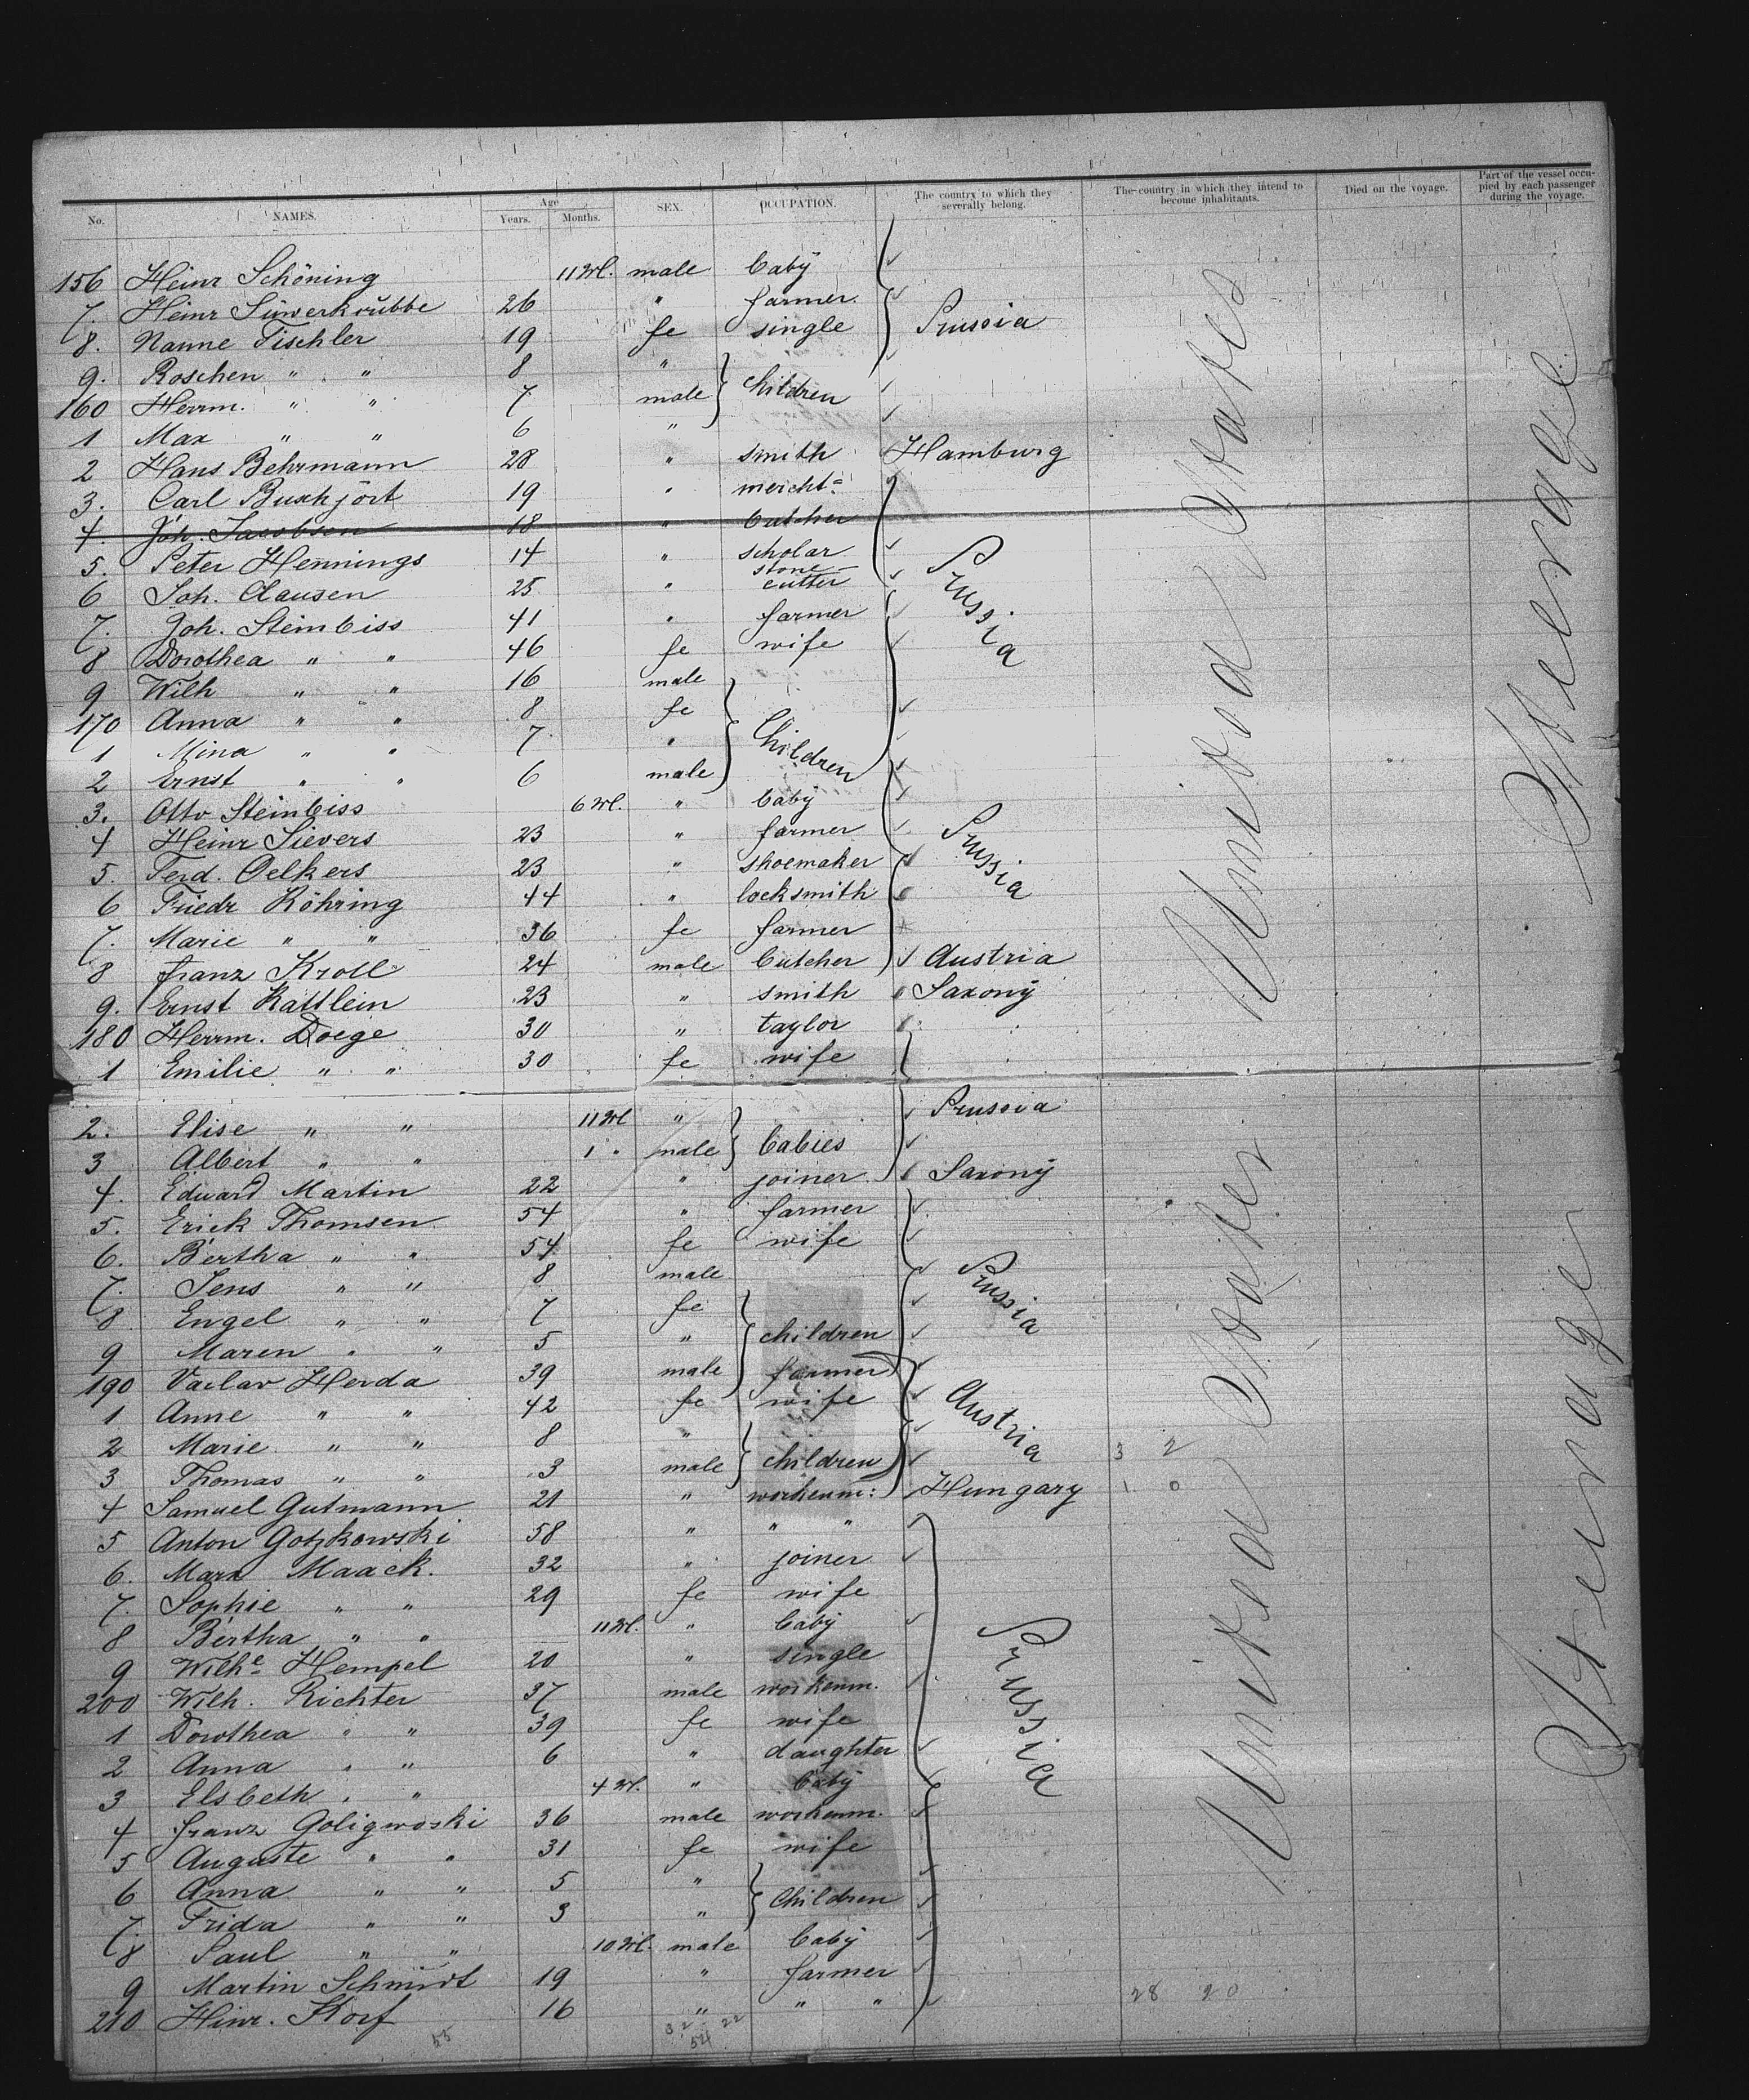 No. NAMES. Age Years. Months. SEX. OCCUPATION. The country to which they severally belong. The country in which they intend to become inhabitants. Died on the voyage. Part of the vessel occupied by each passenger during the voyage.
156 Heinr Schöning 11 M. male baby
7. Heinr Süwerkrübbe 26 " farmer
8. Nanne Tischler 19 fe single Prussia
9. Roschen " " 8 "
160 Herrm. " " 7 male children
1 Max " " 6 "
2 Hans Behrmann 28 " smith Hamburg
3. Carl Buschjort 19 " mercht:
4. Joh. Jacobsen 18 " butcher
5. Peter Hennings 14 " scholar Prussia
6 Joh. Clausen 25 " stone cutter
7. Joh. Steinbiss 41 " farmer
8 Dorothea " " 46 fe wife
9 Wilh " " 16 male
170 Anna " " 8 fe
1 Mina " " 7. " Children
2 Ernst " " 6 male
3. Otto Steinbiss 6 M. " baby
4 Heinr Sievers 23 " farmer Prussia
5. Ferd. Oelkers 23 " shoemaker
6 Friedr Röhring 44 " locksmith
7. Marie " " 36 fe farmer
8 Franz Kroll 24 male butcher Austria
9. Ernst Kattlein 23 " smith Saxony
180 Herrm. Doege 30 " taylor
1 Emilie " " 30 fe wife
2. Elise " " 11 M " Prussia
3 Albert " " 1 " male babies
4. Eduard Martin 22 " joiner Saxony
5. Erick Thomsen 54 " farmer
6. Bertha " " 54 fe wife
7. Jens " " 8 male Prussia
8 Engel " " 7 fe
9 Maren " " 5 " children
190 Vaclav Herda 39 male farmer
1 Anne " " 42 fe wife Austria
2 Marie " " 8 " 3 2
3 Thomas " " 3 male children
4 Samuel Gutmann 21 " workenm: Hungary 1 0
5 Anton Gotzkowski 58 " " "
6. Marx Maack. 32 " joiner
7. Sophie " " 29 fe wife
8 Bertha " " 11 M. " baby
9 Wilhe Hempel 20 " single Prussia
200 Wilh. Richter 37 male workenm.
1 Dorothea " " 39 fe wife
2 Anna " " 6 " daughter
3 Elsbeth " " 4 M. " baby
4 Franz Goligwoski 36 male workenm.
5 Auguste " " 31 fe wife
6 Anna " " 5 "
7. Frida " " 3 " Children
8 Paul " " 10 M. male baby
9 Martin Schmidt 19 " farmer
210 Hinr. Korf 16 " " " 28 20
55 32 22
54
United States
United States
Steerage
Steerage